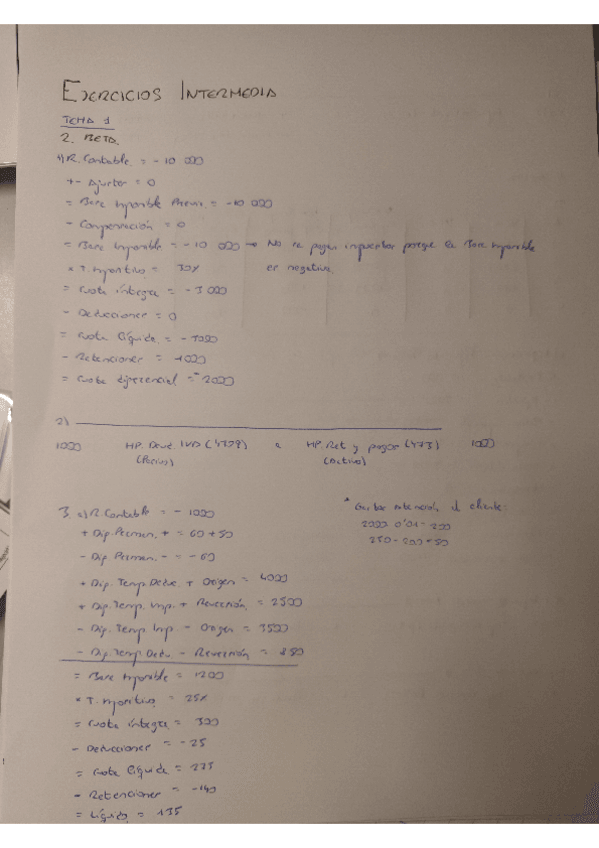 EJERCICIOS INTERMEDIA
TEMA 1
2. BETA.
1) R. Contable = -10 000
+- Ajustes = 0
= Base Imponible Previa = -10 000
- Compensación = 0
= Base Imponible = -10 000 → No se pagan impuestos porque la Base Imponible
es negativa.
× T. impositivo = 30%
= Cuota íntegra = -3000
- Deducciones = 0
= Cuota líquida =
- Retenciones = -1000
= Cuota diferencial = 2000
2)
1000 HP. Deud. IVA (4709) a HP. Ret y pagos (473) 1000
(Activo)
3 a) R. Contable = -1000
+ Dif. Perman. + = 60 + 50
- Dif Perman. - = -60
+ Dif. Temp. Dedu. + Origen = 4000
+ Dif. Temp. Imp. + Reversión = 2500
- Dif. Temp Imp - Origen = 3500
- Dif. Temp Dedu. - Reversión = 850
= Base Imponible = 1200
× T. impositivo = 25%
= Cuota íntegra = 300
- Deducciones = -25
= Cuota líquida = 275
- Retenciones = -140
= Líquido = 135
* Gastos atención al cliente:
2000 0'01 = 200
250 - 200 = 50